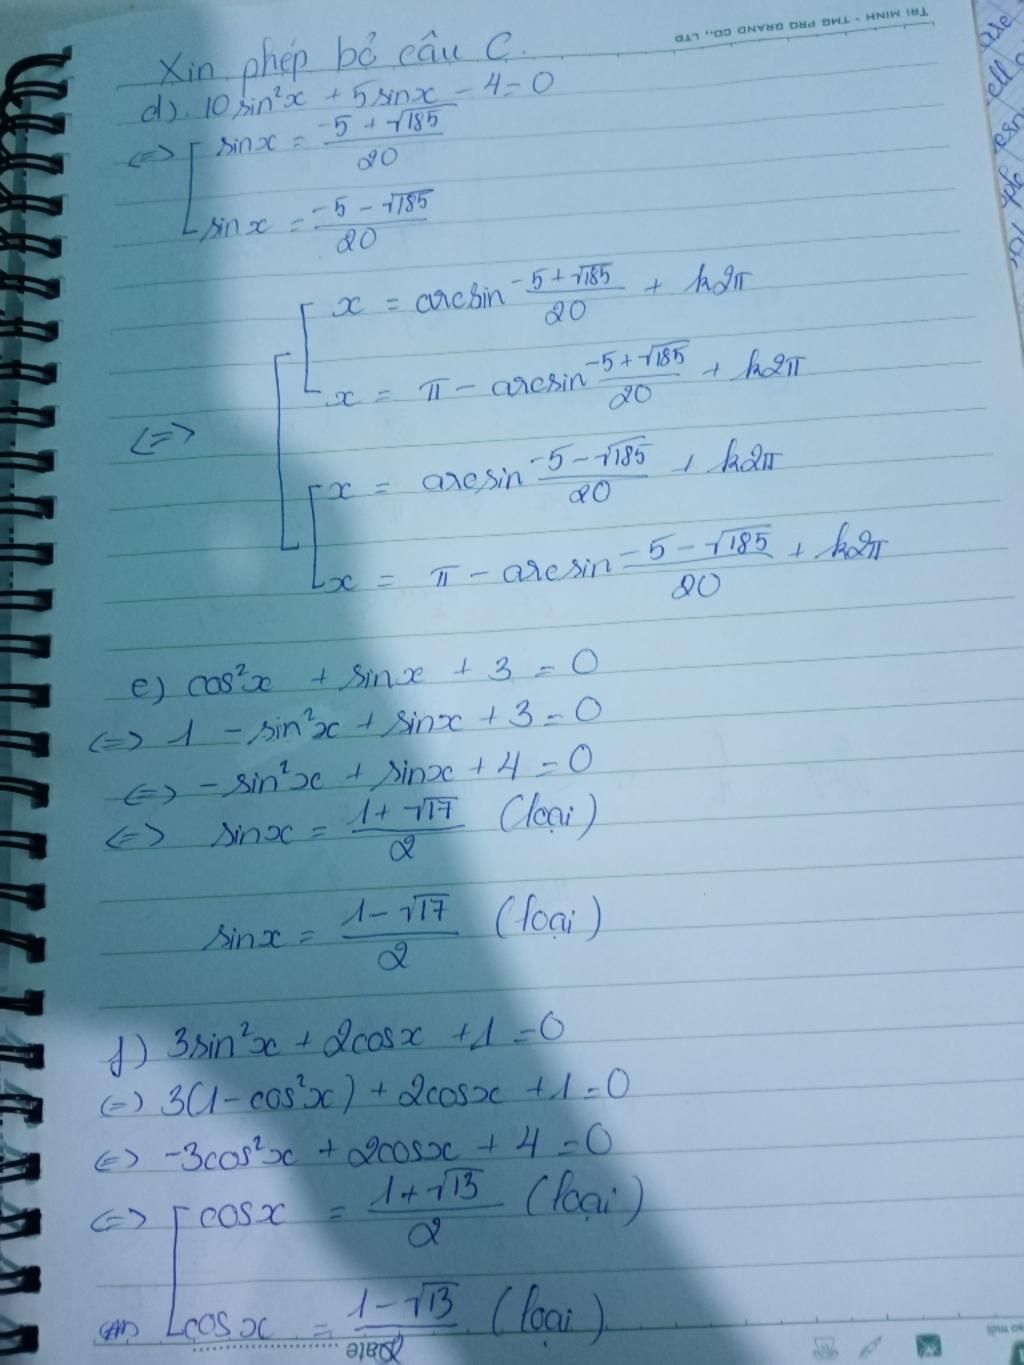 TRI MINH - TMG PRO GRAND CO., LTD
Xin phép bỏ câu C.
d). 10 sin²x + 5 sinx - 4 = 0
<=> [ sinx = (-5 + √185)/20
sinx = (-5 - √185)/20
<=> [ [ x = arcsin (-5 + √185)/20 + k2π
x = π - arcsin (-5 + √185)/20 + k2π
[ x = arcsin (-5 - √185)/20 + k2π
x = π - arcsin (-5 - √185)/20 + k2π
e) cos²x + sinx + 3 = 0
<=> 1 - sin²x + sinx + 3 = 0
<=> -sin²x + sinx + 4 = 0
<=> sinx = (1 + √17)/2 (loại)
sinx = (1 - √17)/2 (loại)
f) 3sin²x + 2cosx + 1 = 0
<=> 3(1 - cos²x) + 2cosx + 1 = 0
<=> -3cos²x + 2cosx + 4 = 0
<=> [ cosx = (1 + √13)/2 (loại)
cosx = (1 - √13)/2 (loại)
Date